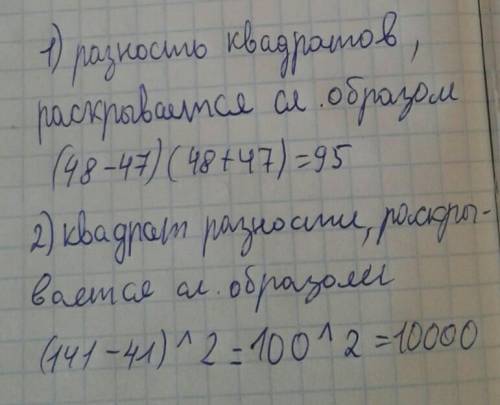 1) разность квадратов,
раскрывается сл. образом
(48-47)(48+47)=95
2) квадрат разности, раскры-
вается сл. образом
(141-41)^2=100^2=10000